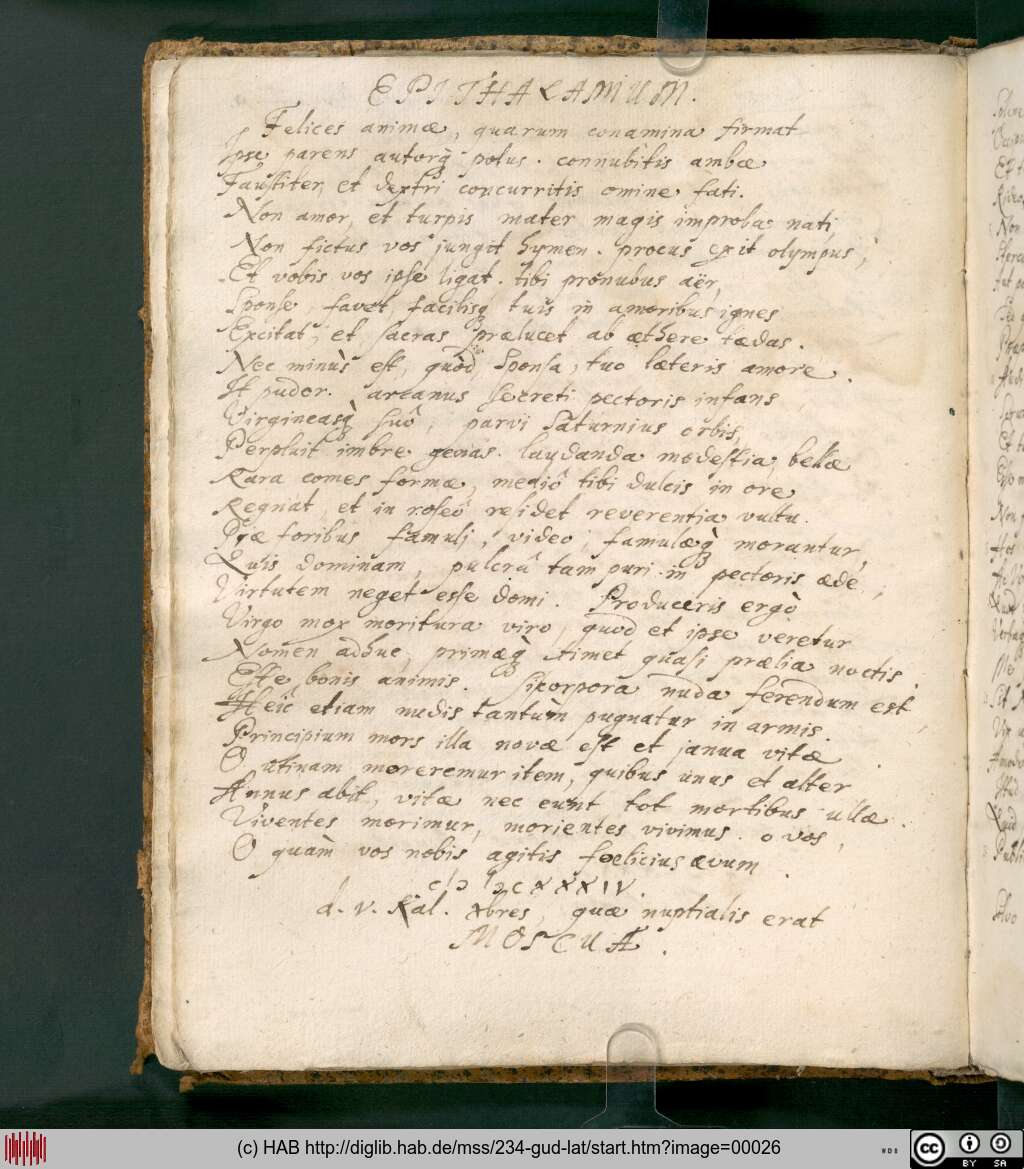 EPITHALAMIUM.
Felices animæ, quarum conamina firmat
Ipse parens autorq̀ polus. connubitis ambæ
Faustiter, et dextri concurritis omine fati.
Non amor, et turpis mater magis improba nati,
Non fictus vos jungit hymen. procus exit olympus,
Et vobis vos ipse ligat. tibi pronubus aër,
Sponse, favet, facilisq tuis in amoribus ignes
Excitat, et sacras prælucet ab æthere tædas.
Nec minùs est, quòd, Sponsa, tuo læteris amore.
It pudor. arcanus secreti pectoris infans
Virgineasq̀ suô, parvi Saturnius orbis,
Perpluit imbre genas. laudanda modestia, bellæ
Rara comes formæ, mediô tibi dulcis in ore
Regnat, et in roseô residet reverentia vultu.
Præ foribus famuli, video, famulæq̀ morantur,
Quis dominam, pulcrâ tam puri in pectoris æde,
Virtutem neget esse domi. Produceris ergò
Virgo mox moritura viro, quod et ipse veretur
Nomen adhuc, primæq̀ timet quasi prælia noctis.
Este bonis animis. Si corpora nuda ferendum est
Heîc etiam nudis tantùm pugnatur in armis.
Principium mors illa novæ est et janua vitæ
O utinam moreremur item, quibus unus et alter
Annus abit, vitæ nec eunt tot mortibus ullæ.
Viventes morimur, morientes vivimus. o vos,
O quàm vos nobis agitis fœlicius ævum.
cIↃ IↃcXXXIV.
d. V. Kal. Xbres, quæ nuptialis erat
MOSCUÆ.
(c) HAB http://diglib.hab.de/mss/234-gud-lat/start.htm?image=00026
cc BY SA